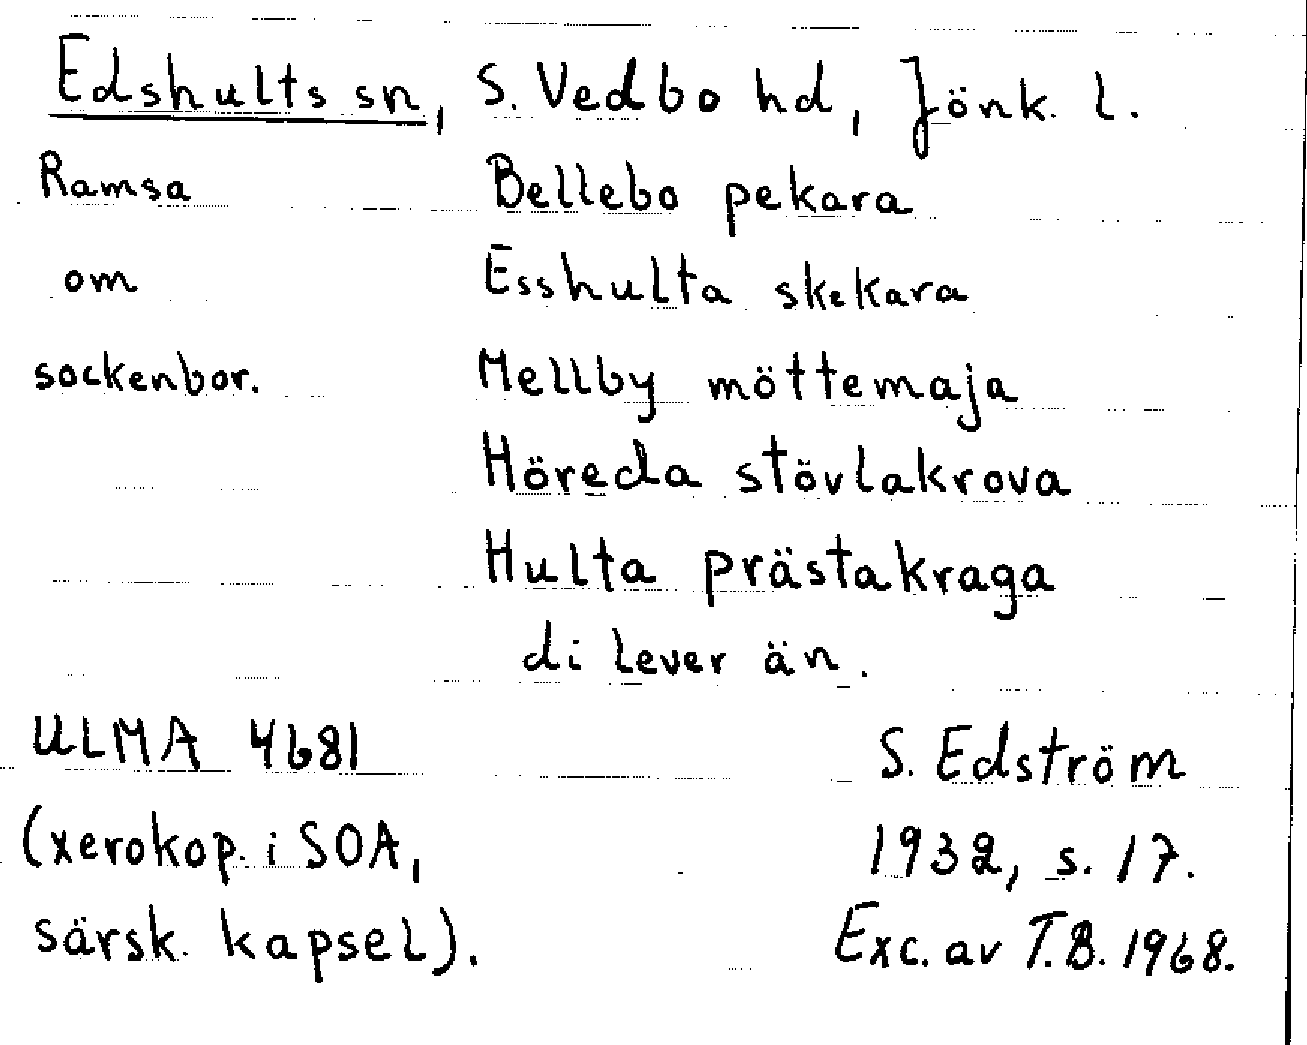 Edshults sn, S. Vedbo hd, Jönk. l.
Ramsa Bellebo pekara
om Esshulta skekara
sockenbor. Mellby möttemaja
Höreda stövlakrova
Hulta prästakraga
di lever än.
ULMA 4681 S. Edström
(xerokop. i SOA, 1932, s. 17.
särsk. kapsel). Exc. av T.B. 1968.